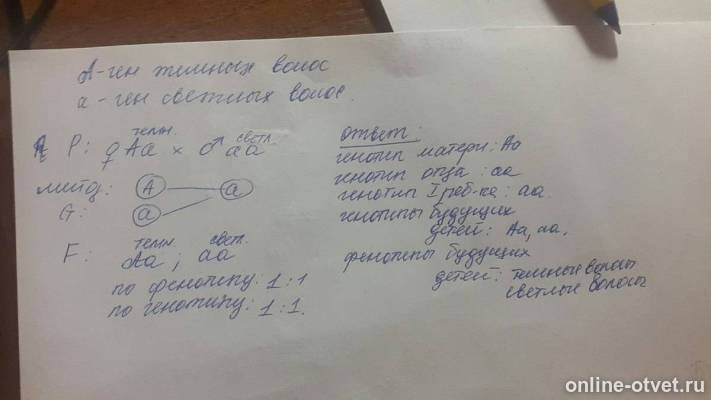 А-ген темных волос
а - ген светлых волос.
темн. светл.
P: ♀ Аа × ♂ аа
мейоз:
А а
G: а
темн. свет.
F: Аа ; аа
по фенотипу: 1:1
по генотипу: 1:1.
ответ:
генотип матери: Аа
генотип отца : аа
генотип I реб-ка: аа.
генотипы будущих
детей: Аа, аа.
фенотипы будущих
детей: темные волосы
светлые волосы
online-otvet.ru